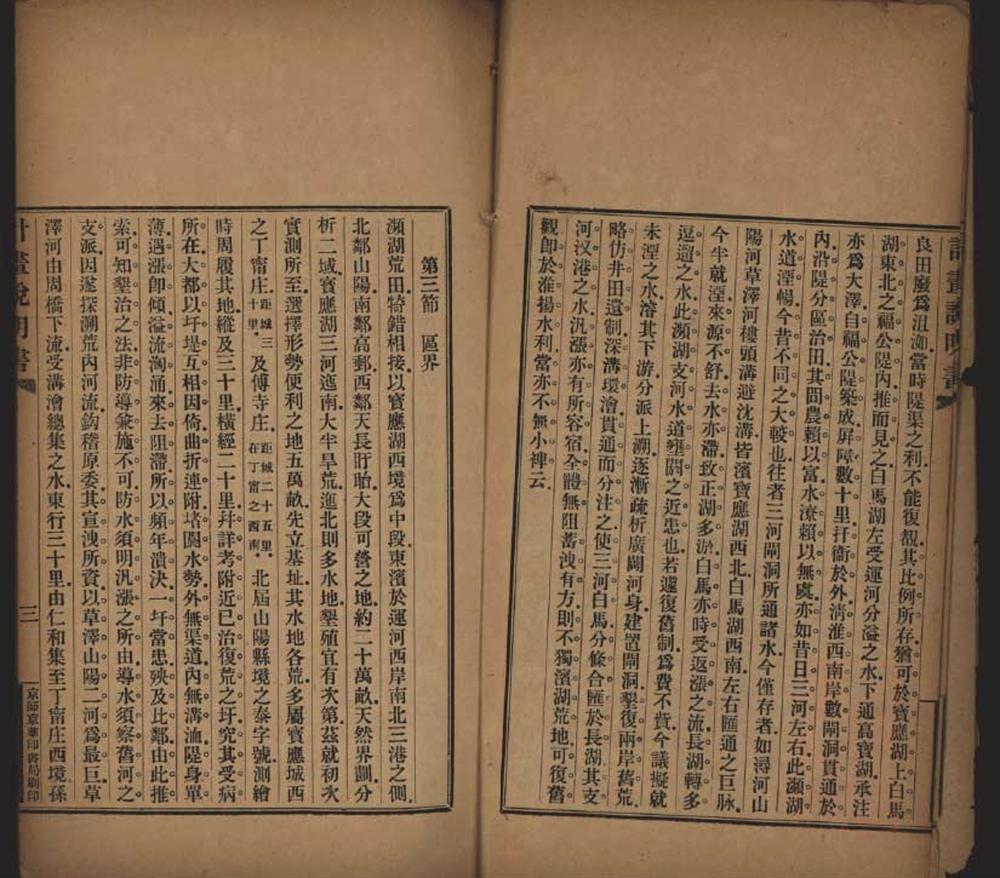 計畫說明書
良田廢爲沮洳當時隄渠之利不能復覩其比例所存猶可於寶應湖上白馬
湖東北之福公隄內推而見之白馬湖左受運河分溢之水下通高寶湖承注
亦爲大澤自福公隄築成屛障數十里扞衞於外淸淮西南岸數閘洞貫通於
內沿隄分區治田其間農賴以富水潦賴以無虞亦如昔日三河左右此瀕湖
水道湮暢今昔不同之大較也往者三河閘洞所通諸水今僅存者如潯河山
陽河草澤河樓頭溝避沈溝皆濱寶應湖西北白馬湖西南左右匯通之巨脉
今半就湮來源不舒去水亦滯致正湖多淤白馬亦時受返漲之流長湖轉多
逗遛之水此瀕湖支河水道壅閼之近患也若遽復舊制爲費不貲今議擬就
未湮之水溶其下游分派上溯逐漸疏析廣闢河身建置閘洞墾復兩岸舊荒
略仿井田遺制深溝環澮貫通而分注之使三河白馬分條合匯於長湖其支
河汊港之水汎漲亦有所容宿全體無阻蓄洩有方則不獨濱湖荒地可復舊
觀卽於淮揚水利當亦不無小裨云
第三節 區界
瀕湖荒田犄錯相接以寶應湖西境爲中段東濱於運河西岸南北三港之側
北鄰山陽南鄰高郵西鄰天長盱眙大段可營之地約二十萬畝天然界劃分
析二域寶應湖三河迤南大半旱荒迤北則多水地墾殖宜有次第茲就初次
實測所至選擇形勢便利之地五萬畝先立基址其水地各荒多屬寶應城西
之丁甯庄距城三十里及傅寺庄距城二十五里在丁甯之西南北屆山陽縣境之泰字號測繪
時周履其地縱及三十里橫經二十里幷詳考附近已治復荒之圩究其受病
所在大都以圩堤互相因倚曲折連附堵閼水勢外無渠道內無溝洫隄身單
薄遇漲卽傾溢流淘涌來去阻滯所以頻年潰決一圩當患殃及比鄰由此推
索可知墾治之法非防導兼施不可防水須明汎漲之所由導水須察舊河之
支派因遂探溯荒內河流鈎稽原委其宣洩所資以草澤山陽二河爲最巨草
澤河由周橋下流受溝澮總集之水東行三十里由仁和集至丁甯庄西境孫
計畫說明書
三
京師京華印書局刷印